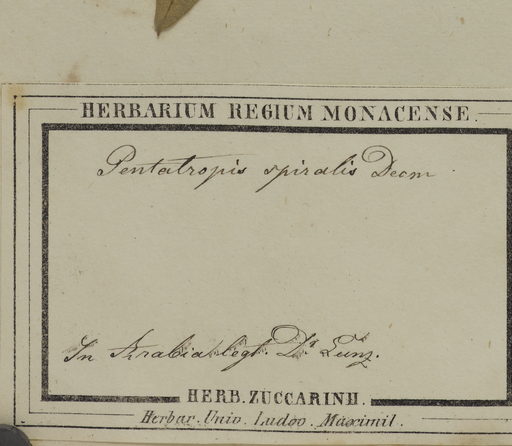 HERBARIUM REGIUM MONACENSE.
Pentatropis spiralis Decm
In Arabia legt. Dr. Lunz.
HERB. ZUCCARINII.
Herbar. Univ. Ludov. Maximil.